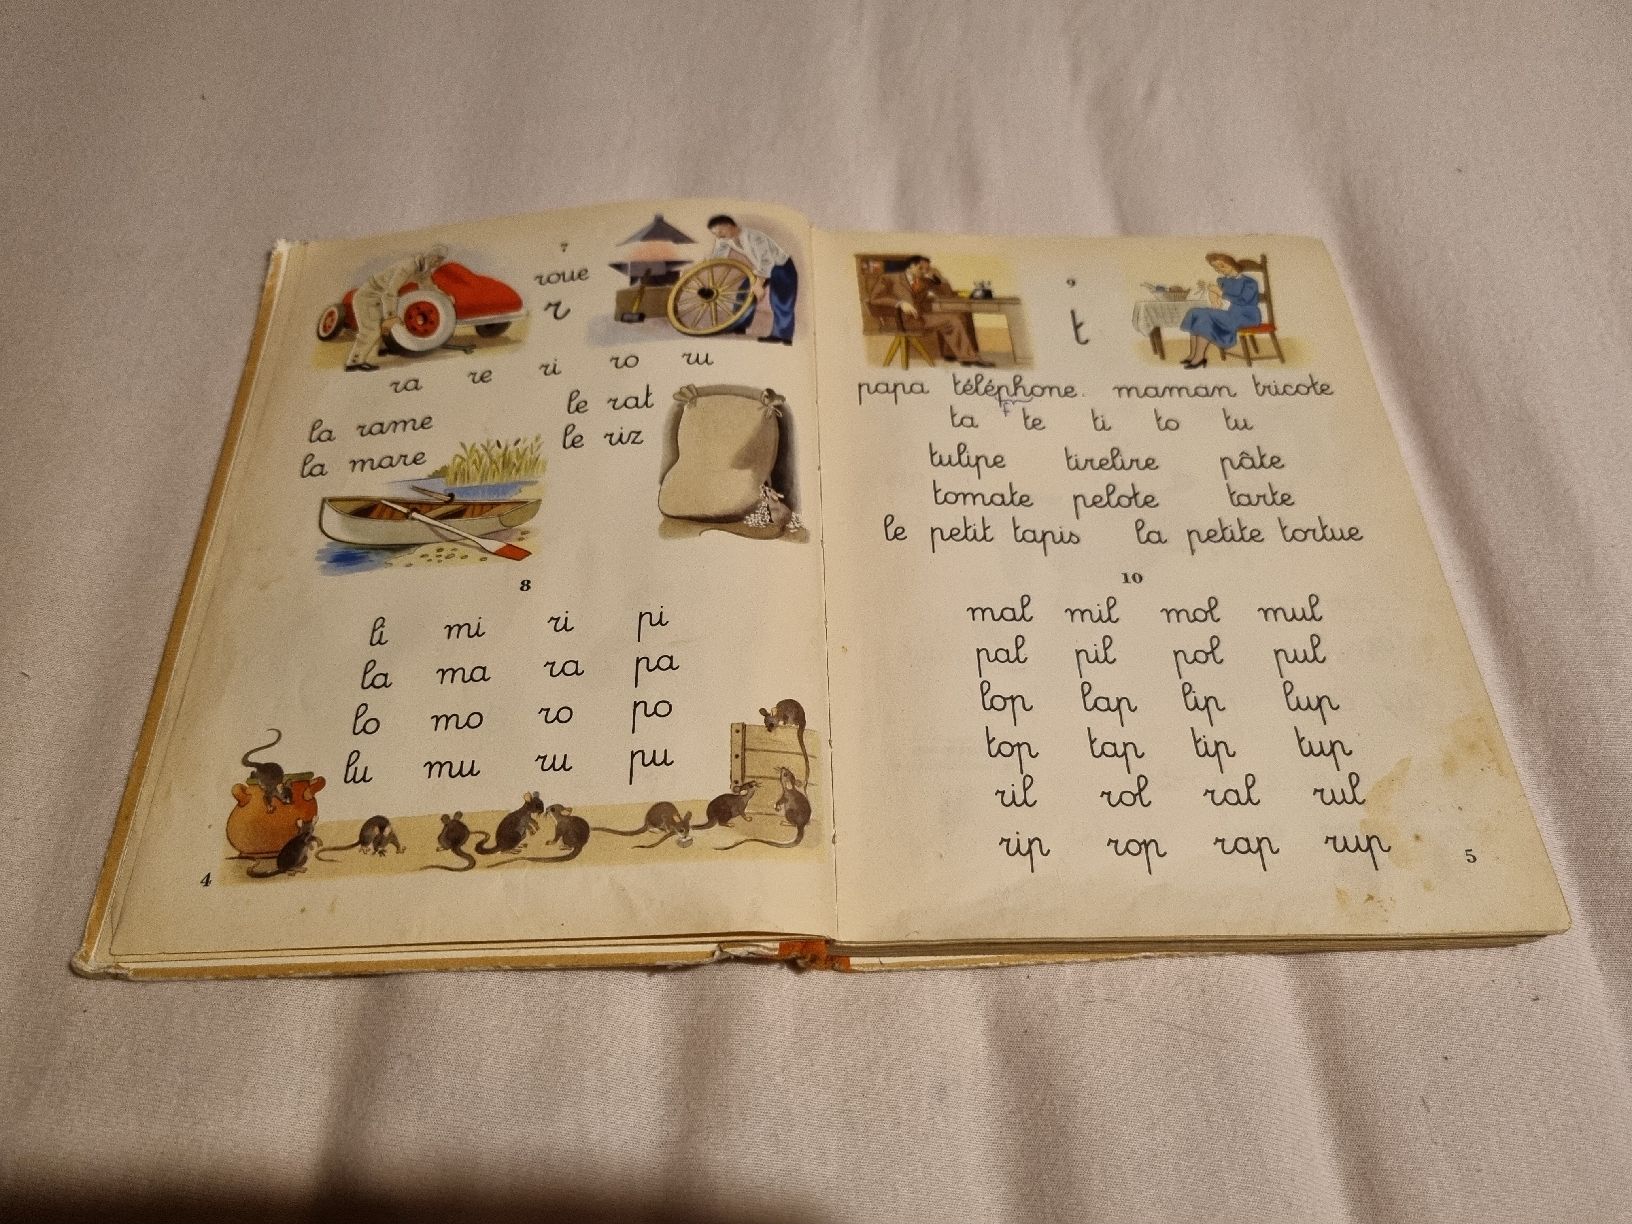 7
roue
r
ra re ri ro ru
la rame
la mare
le rat
le riz
8
li mi ri pi
la ma ra pa
lo mo ro po
lu mu ru pu
4
9
t
papa téléphone. maman tricote
f
ta te ti to tu
tulipe tirelire pâte
tomate pelote tarte
le petit tapis la petite tortue
10
mal mil mol mul
pal pil pol pul
lop lap lip lup
top tap tip tup
ril rol ral rul
rip rop rap rup
5